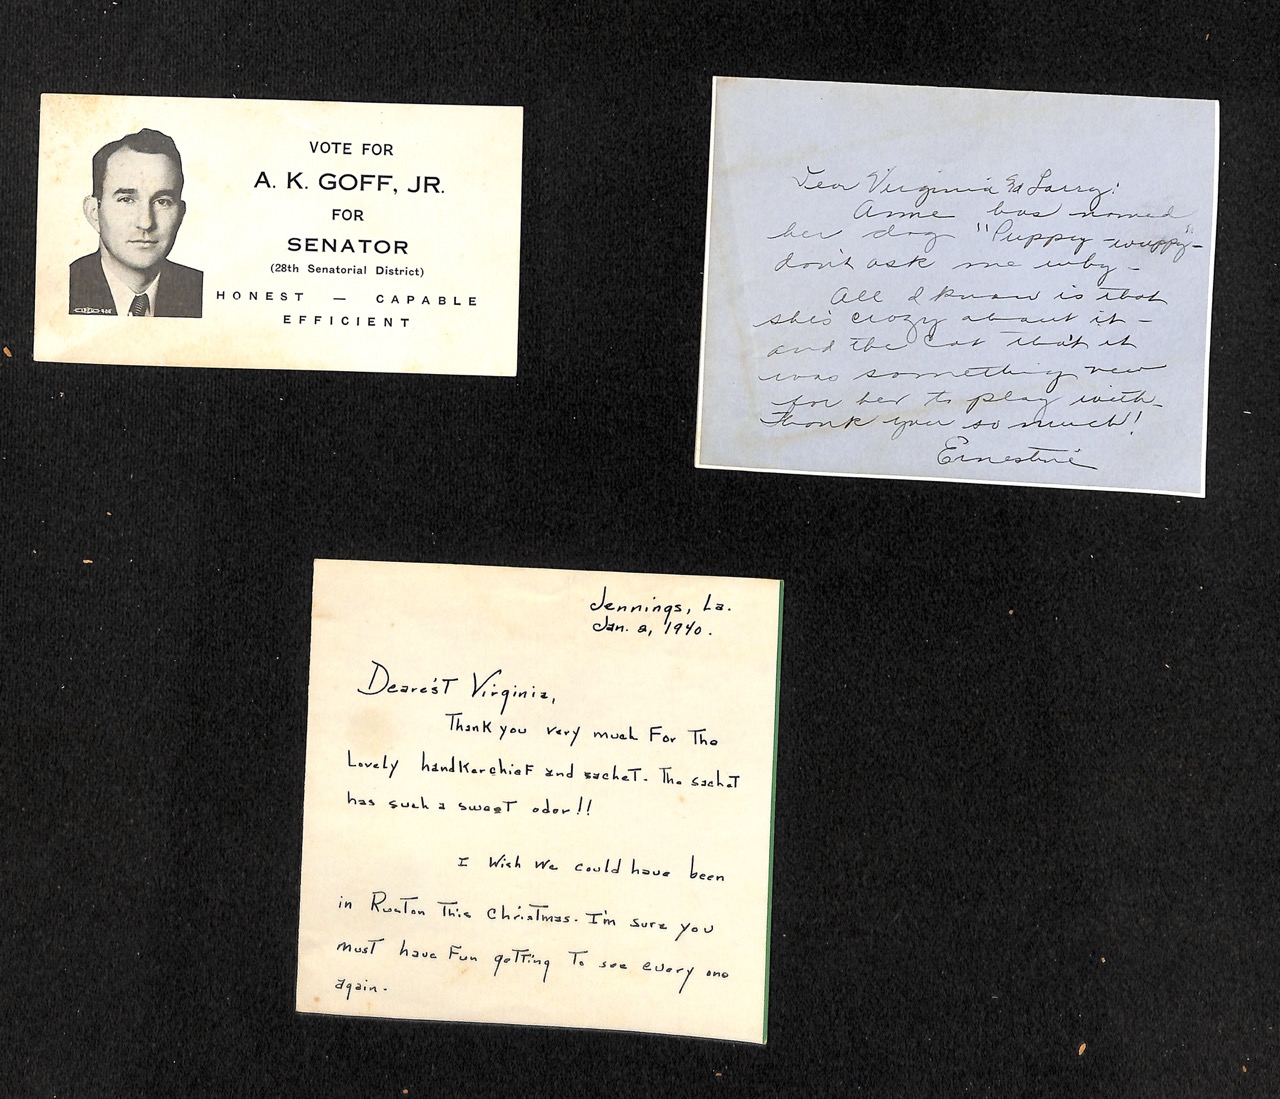 VOTE FOR
A. K. GOFF, JR.
FOR
SENATOR
(28th Senatorial District)
HONEST — CAPABLE
EFFICIENT
Dear Virginia & Larry:
Anne has named
her dog "Puppy-wuppy"-
don't ask me why-
All I know is that
she's crazy about it-
and the cat that it
was something new
for her to play with-
Thank you so much!
Ernestine
Jennings, La.
Jan. 2, 1940.
Dearest Virginia,
Thank you very much For The
Lovely handkerchief and sachet. The sachet
has such a sweet odor!!
I Wish We could have been
in Ruston This Christmas. I'm sure you
must have Fun getting To see every one
again.